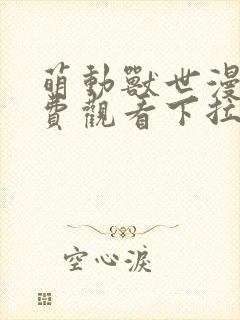 萌動獸世漫
費觀看下拉
空心淚